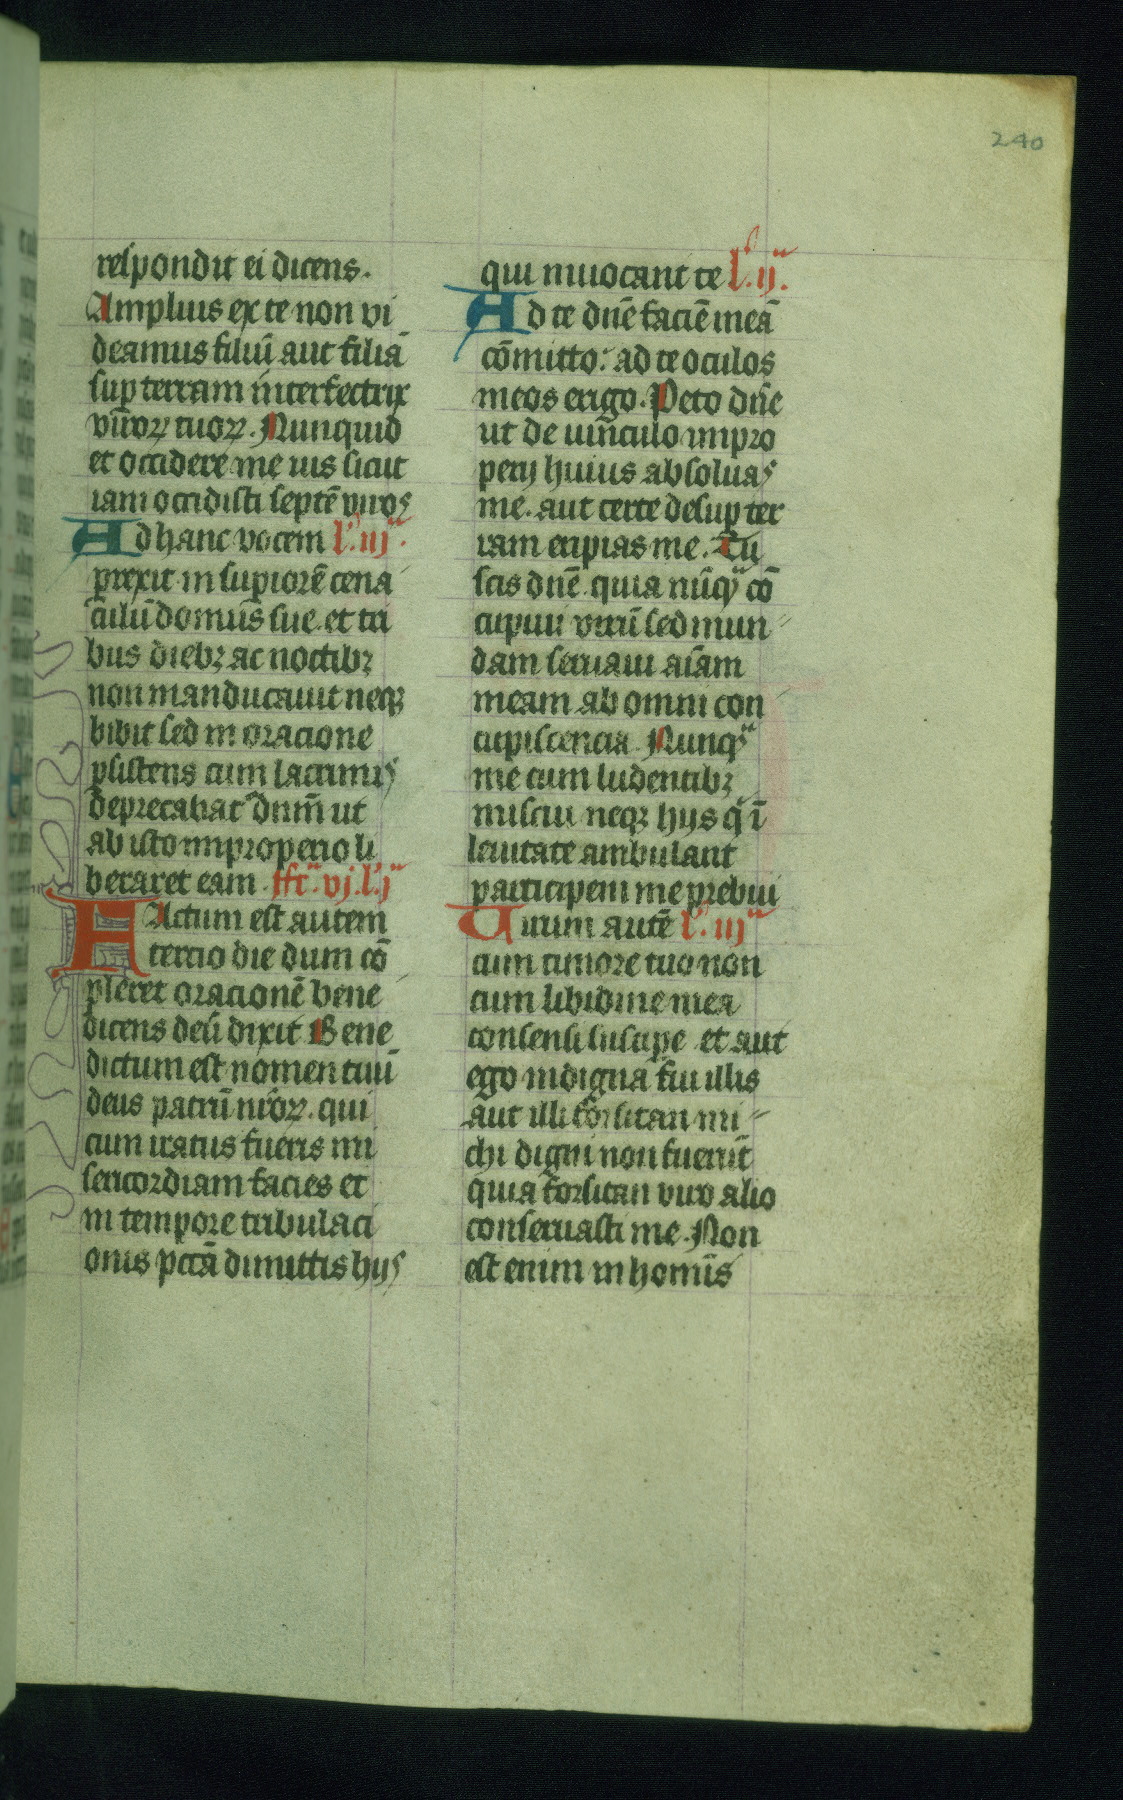 240
respondit ei dicens.
Amplius ex te non vi
deamus filiū aut filiā
sup terram interfectrix
viroꝝ tuoꝝ. Nunquid
et occidere me uis sicut
iam occidisti septē viros
Ad hanc vocem l'. iijª.
prexit in supiorē cena
culū domus sue. et tri
bus diebꝫ ac noctibꝫ
non manducauit neqꝫ
bibit sed in oracione
psistens cum lacrimis
deprecabat dnm̄ ut
ab isto improperio li
beraret eam. ffr̄ª. vj. l'. jª
FActum est autem
tercio die dum cō
pleret oracionē bene
dicens deū dixit Bene
dictum est nomen tuū
deus patrū nr̄oꝝ. qui
cum iratus fueris mi
sericordiam facies et
in tempore tribulaci
onis pctā dimittis hijs
qui inuocant te l'. ijª.
Ad te dn̄e faciē meā
cōmitto: ad te oculos
meos erigo. Peto dn̄e
ut de uinculo impro
perij huius absoluas
me. aut certe desup ter
ram eripias me. Tu
scis dn̄e. quia nūqª cō
cupiui virū sed mun
dam seruaui aīam
meam ab omni con
cupiscencia. Nunqª
me cum ludentibꝫ
miscui neqꝫ hijs q' ī
leuitate ambulant
participem me prebui
Uirum autē l'. iijª
cum timore tuo non
cum libidine mea
consensi suscipe et aut
ego indigna fui illis
aut illi forsitan mi
chi digni non fuerūt
quia forsitan viro alio
conseruasti me. Non
est enim in homīs